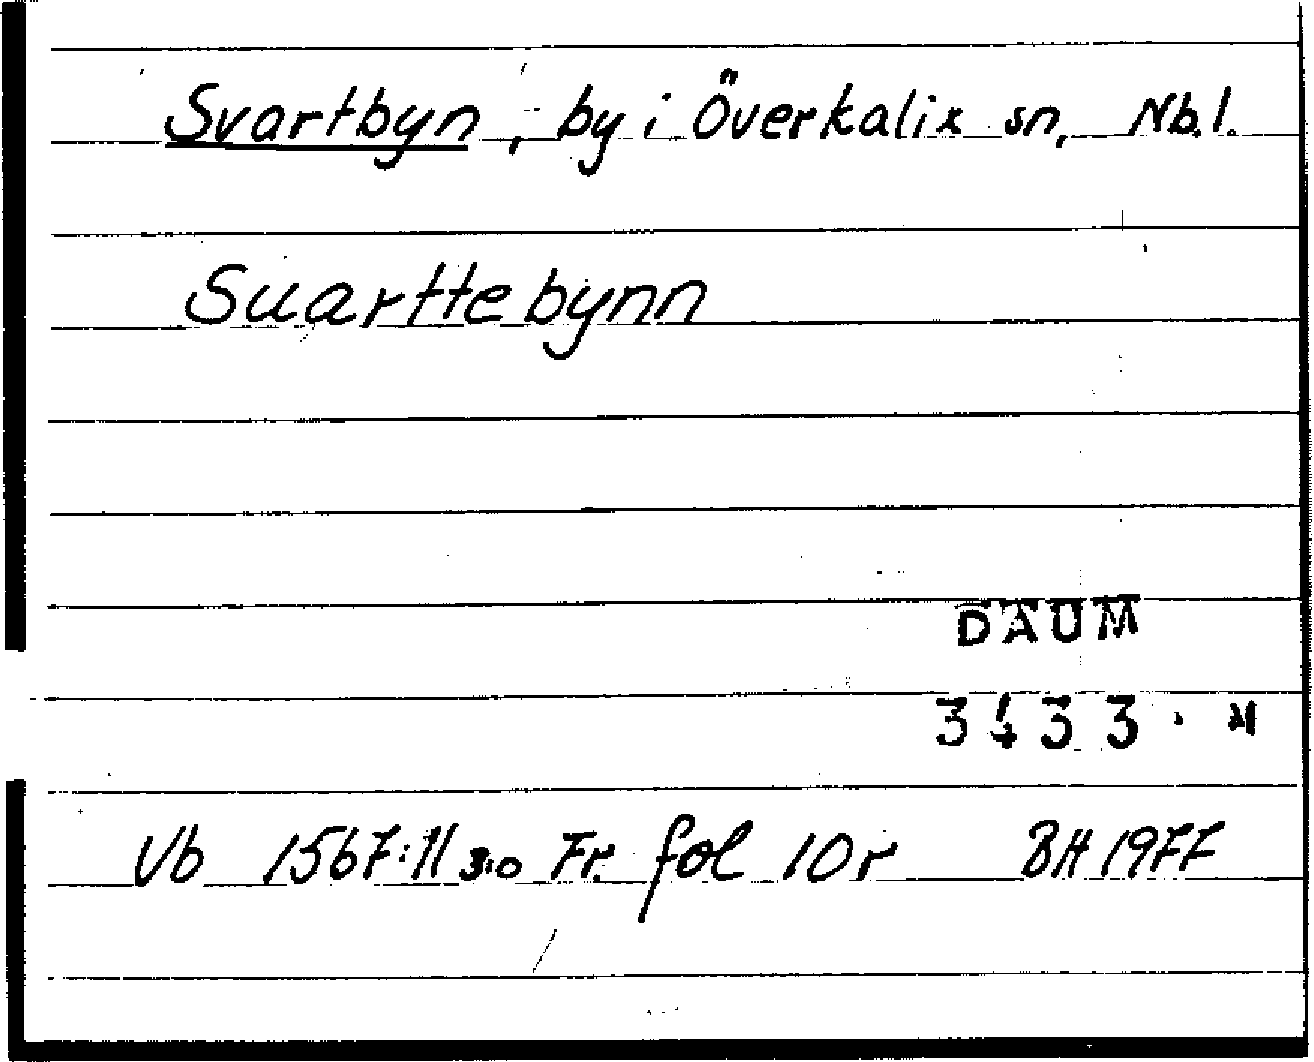 Svartbyn, by i Överkalix sn, Nb.l.
Suarttebynn
DAUM
3433. M
Vb 1567:11 3:o Fr. fol 10r BH 1977